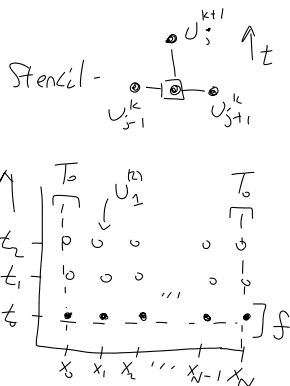 U_j^{k+1}
t
Stencil -
U_{j-1}^k
U_{j+1}^k
T_0
U_1^{(2)}
T_0
t_2
t_1
...
t_0
f
x_0 x_1 x_2 ... x_{N-1} x_N